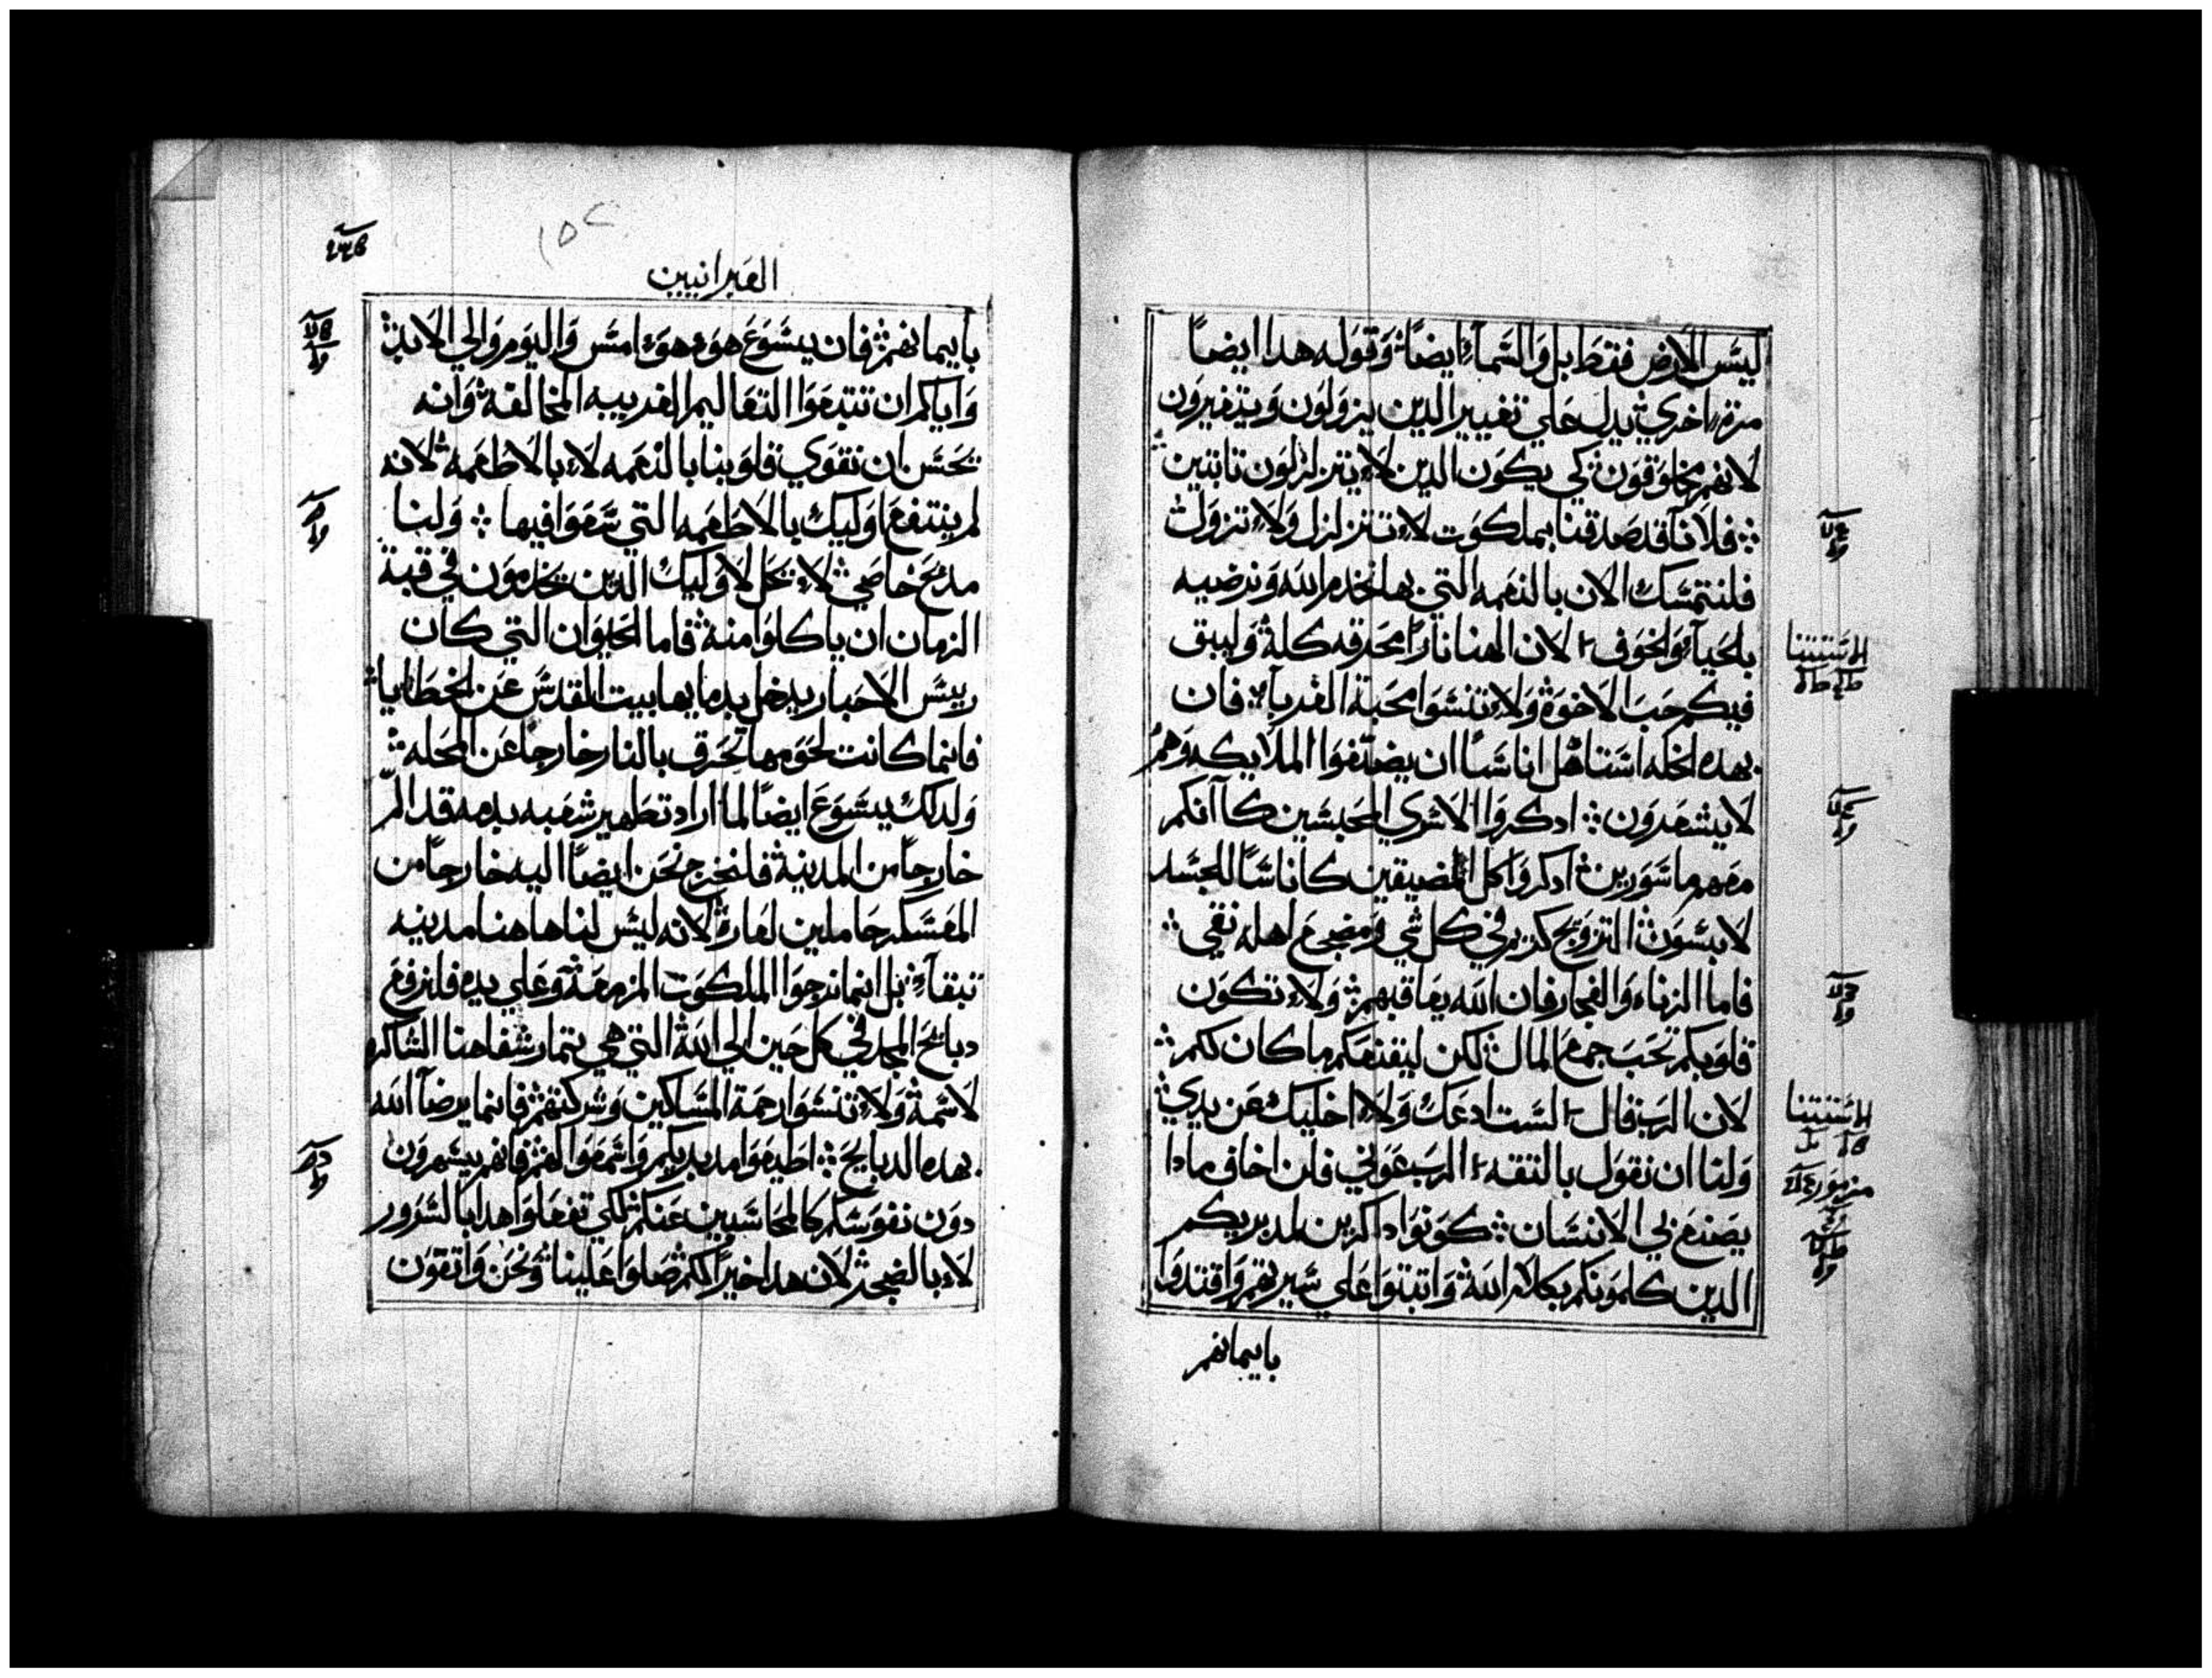 ليسَ الارض فقط بل والسَمآء ايضاً وقوله هدا ايضاً
مرة اخري يدل علي تغيير الدين يزولون ويتغيرون
لانهم مخلوقون كي يكون الدين لا يتزلزلون تابتين
فلانآ قد صدقنا بملكوت لا تتزلزل ولا تزول
فلنتمسَك الان بالنعمه التي بها نخدم الله ونرضيه
بالحيآء والخوف لان الهنا نارًا محرقه كلة وليبق
فيكم حب الاخوة ولا تنسَوا محبة الغربآ فان
بهده الخله اسَتاهل اناسَاً ان يضيفوا الملايكه وهم
لا يشعرون ادكروا الاسَري المحبسَين كاآنكم
معهم ماسَورين ادكروا كل المضيقين كاناسَاً للجسَد
لابسَون التزويج كريم في كل شي ومضجع اهله نقي
فاما الزناه والفجار فان الله يعاقبهم ولا تكون
قلوبكم تحب جمع المال لكن ليقنعكم ما كان لكم
لان الرب قال السَت ادعك ولا اخليك عن يدي
ولنا ان نقول بالتقه الرب عوني فلن اخاف مادا
يصنع بي الانسَان كونوا داكرين لمدبريكم
الدين كلموكم بكلام الله واتبتوا علي سَيرتهم واقتدوا
بايمانهم
العبرانيين
بايمانهم فان يسَوع هو هو امسَ واليوم والي الابد
واياكم ان تتبعوا التعاليم الغريبه المخالفة وانه
يحسَن ان نقوي قلوبنا بالنعمه لا بالاطعمه لانه
لم ينتفع اوليك بالاطعمه التي سَعوا فيها ولنا
مدبح خاصي لا يحل لاوليك الدين يخدمون في قبة
الزمان ان ياكلوا منه فاما الحيوان التي كان
رييسَ الاحبار يدخل بدمايها بيت المقدسَ عن الخطايا
فانما كانت لحومها تحرق بالنار خارجا عن المحله
ولدلك يسَوع ايضاً لما اراد تطهير شعبه بدمه قد الم
خارجاً من المدينة فلنخرج نحن ايضاً اليه خارجاً من
المعسَكر حاملين لعارة لانه ليسَ لنا هاهنا مدينه
تبقآ بل انما نرجوا الملكوت المزمعة وعلي يده فلنرفع
دبايح المجد في كل حين الي الله التي هي تمار شفاهنا الشاكره
لاسَمة ولا تنسَوا رحمة المسَاكين وشركتهم فانما يرضآ الله
بهده الدبايح اطيعوا مدبريكم واسَمعوا لهم فانهم يسَهرون
دون نفوسَكم كالمحاسَبين عنكم لكي تفعلوا هدا بالسَرور
لا بالضجر لان هدا خيراً لكم صلوا علينا ونحن واتقون